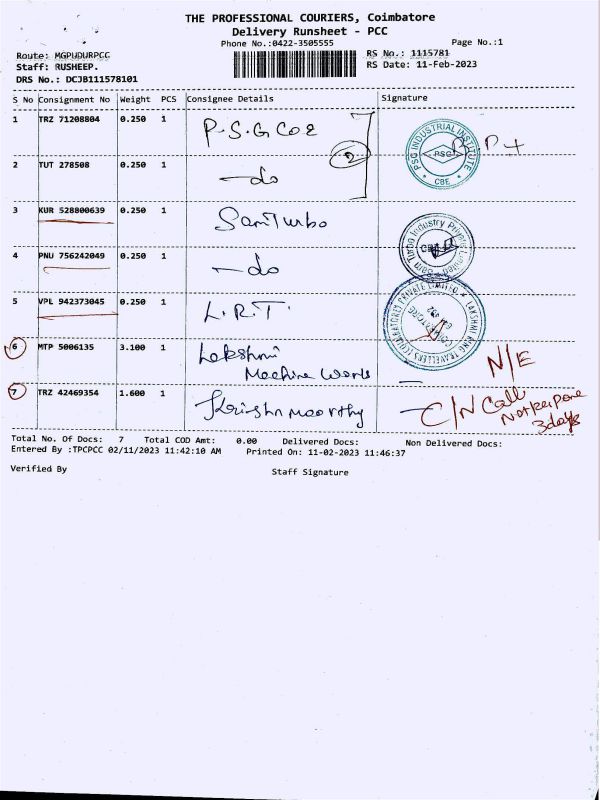 THE PROFESSIONAL COURIERS, Coimbatore
Delivery Runsheet - PCC
Phone No.:0422-3505555
Page No.:1
Route: MGPUDURPCC
RS No.: 1115781
Staff: RUSHEEP.
RS Date: 11-Feb-2023
DRS No.: DCJB111578101
S No Consignment No Weight PCS Consignee Details Signature
1 TRZ 71208804 0.250 1 P.S.G COE
PSG INDUSTRIAL INSTITUTE PSG CBE
2
2 TUT 278508 0.250 1 -do
3 KUR 528800639 0.250 1 Sam Turbo
Sam Turbo Industry Private Limited
4 PNU 756242049 0.250 1 -do
5 VPL 942373045 0.250 1 L.R.T.
LAKSHMI RING TRAVELLERS (COIMBATORE) PRIVATE LIMITED
6 MTP 5006135 3.100 1 Lakshmi
Machine Works — N/E
7 TRZ 42469354 1.600 1 Krishnamoorthy — C/N Call
3 days
Total No. Of Docs: 7 Total COD Amt: 0.00 Delivered Docs: Non Delivered Docs:
Entered By :TPCPCC 02/11/2023 11:42:10 AM Printed On: 11-02-2023 11:46:37
Verified By
Staff Signature